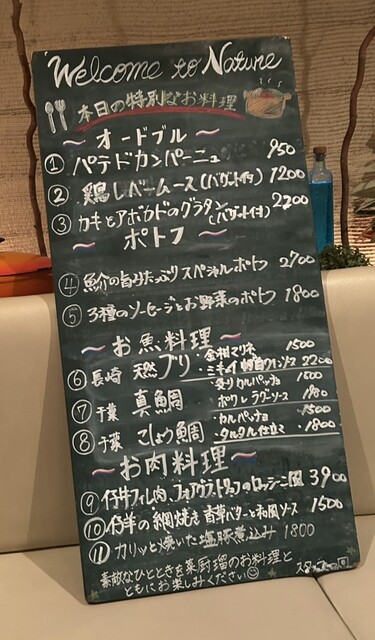 Welcome to Nature
本日の特別なお料理
～オードブル～
① パテドカンパーニュ 950
② 鶏レバームース(バゲット付) 1200
③ カキとアボカドのグラタン(バゲット付) 2200
～ポトフ～
④ 魚介の旨みたっぷりスペシャルポトフ 2700
⑤ 3種のソーセージとお野菜のポトフ 1800
～お魚料理～
⑥ 長崎 天然ブリ ・金柑マリネ 1500
・ミキュイ 白ワインソース 2200
⑦ 千葉 真鯛 ・炙りカルパッチョ 1500
・ポワレ ラグーソース 1980
⑧ 千葉 こしょう鯛 ・カルパッチョ 1500
・タルタル仕立て 1800
～お肉料理～
⑨ 仔牛フィレ肉、フォアグラ、トリュフのロッシーニ風 3900
⑩ 仔羊の網焼き 香草バターと和風ソース 1500
⑪ カリッと焼いた塩豚煮込み 1800
素敵なひとときを薬厨瑠のお料理と
ともにお楽しみください スタッフ一同